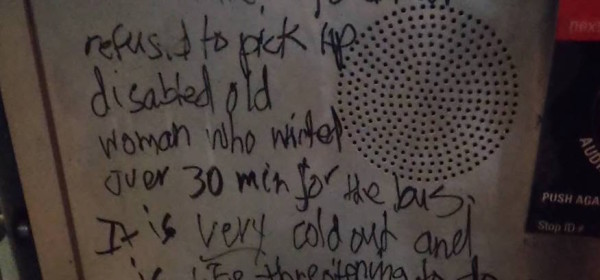 refused to pick up
disabled old
woman who waited
over 30 min for the bus.
It is very cold out and
is life thretening to do
AUD
PUSH AGA
Stop ID #